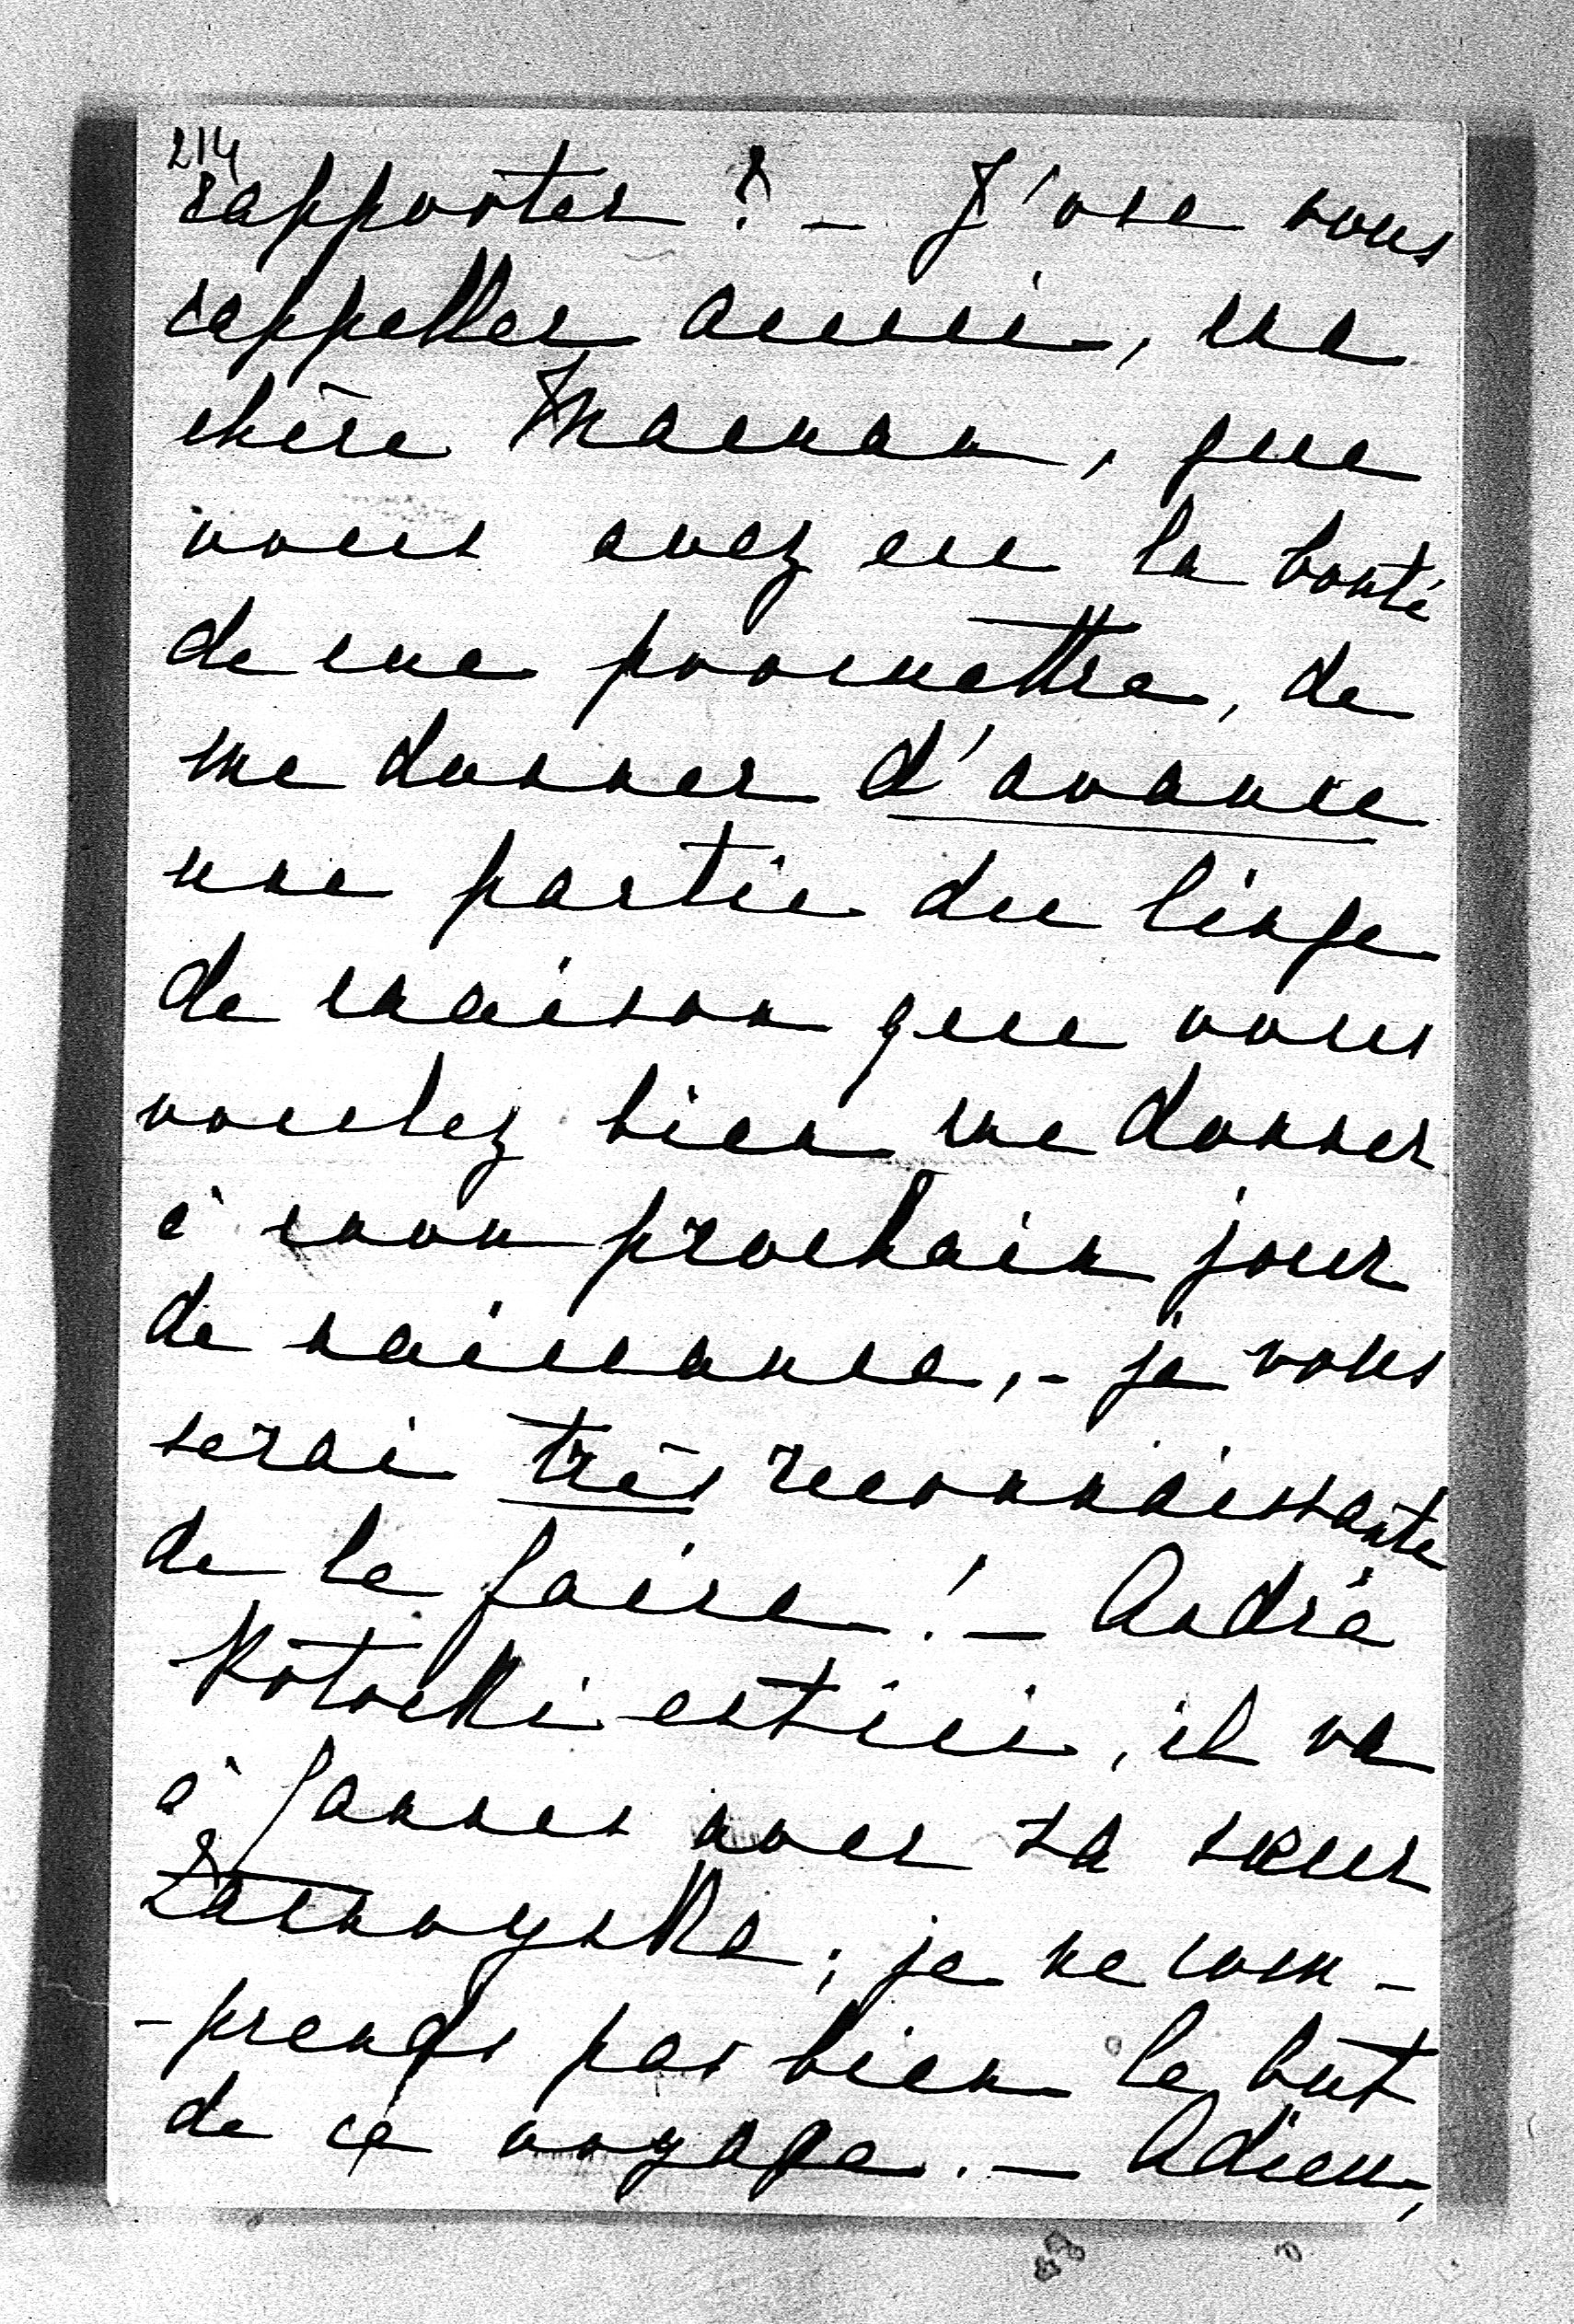 214
rapporter? – J'ose vous
rappeller aussi, ma
chère Maman, que
vous avez eu la bonté
de me promettre, de
me donner d'avance
une partie du linge
de maison que vous
voulez bien me donner
à mon prochain jour
de naissance, – je vous
serai très reconnaissante
de le faire! – André
Potocki est ici, il va
à Cannes avec sa sœur
Zamoyska; je ne com-
-prends pas bien le but
de ce voyage. – Adieu,